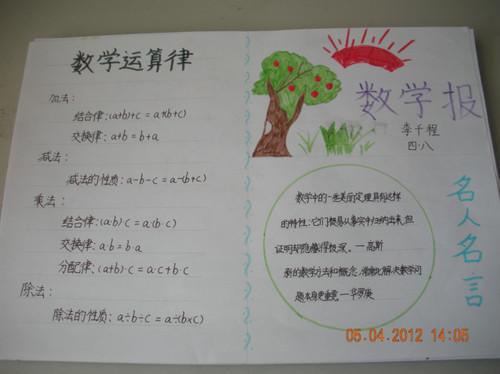 数学运算律
加法：
结合律：(a+b)+c = a+(b+c)
交换律：a+b = b+a
减法：
减法的性质：a-b-c = a-(b+c)
乘法：
结合律：(a·b)·c = a·(b·c)
交换律：a·b = b·a
分配律：(a+b)·c = a·c+b·c
除法：
除法的性质：a÷b÷c = a÷(b×c)
数学报
李千程
四·八
数学中的一些美丽定理具有这样
的特性：它们极易从事实中归纳出来，但
证明却隐藏得极深。—高斯
新的数学方法和概念，常常比解决数学问
题本身更重要。—华罗庚
名人名言
05.04.2012 14:05